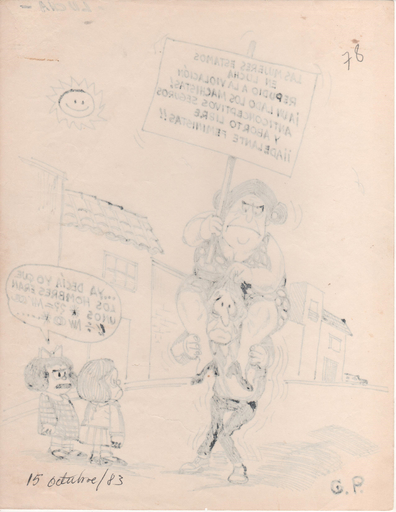 78
LAS MUJERES ESTAMOS
EN LUCHA
REPUDIO A LA VIOLACIÓN
¡A UN LADO LOS MACHISTAS,
ANTICONCEPTIVOS SEGUROS
Y ABORTO LIBRE
¡¡ADELANTE FEMINISTAS!!
...YA DECÍA YO QUE
LOS HOMBRES ERAN
UNOS
15 octubre/83
G.P.